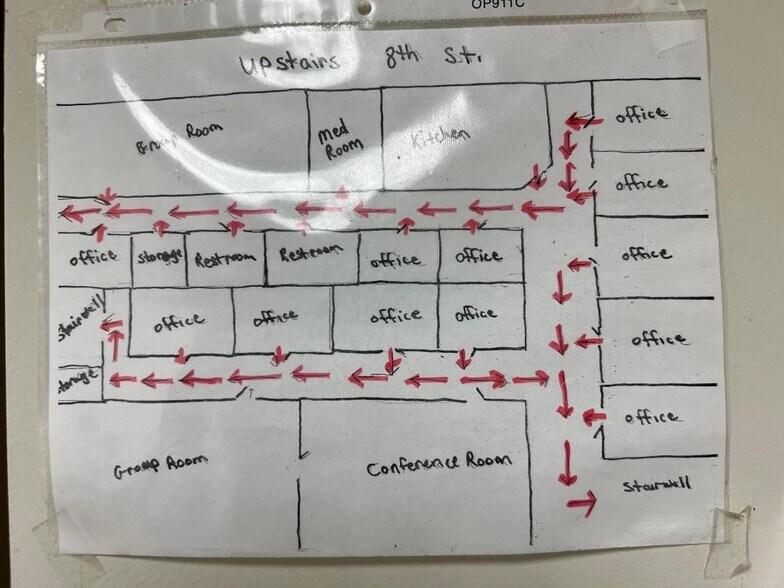 OP911C
Upstairs 8th St.
Group Room
Med
Room
Kitchen
office
office
office
storage
Restroom
Restroom
office
office
office
Stairwell
office
office
office
office
office
storage
office
Group Room
Conference Room
Stairwell